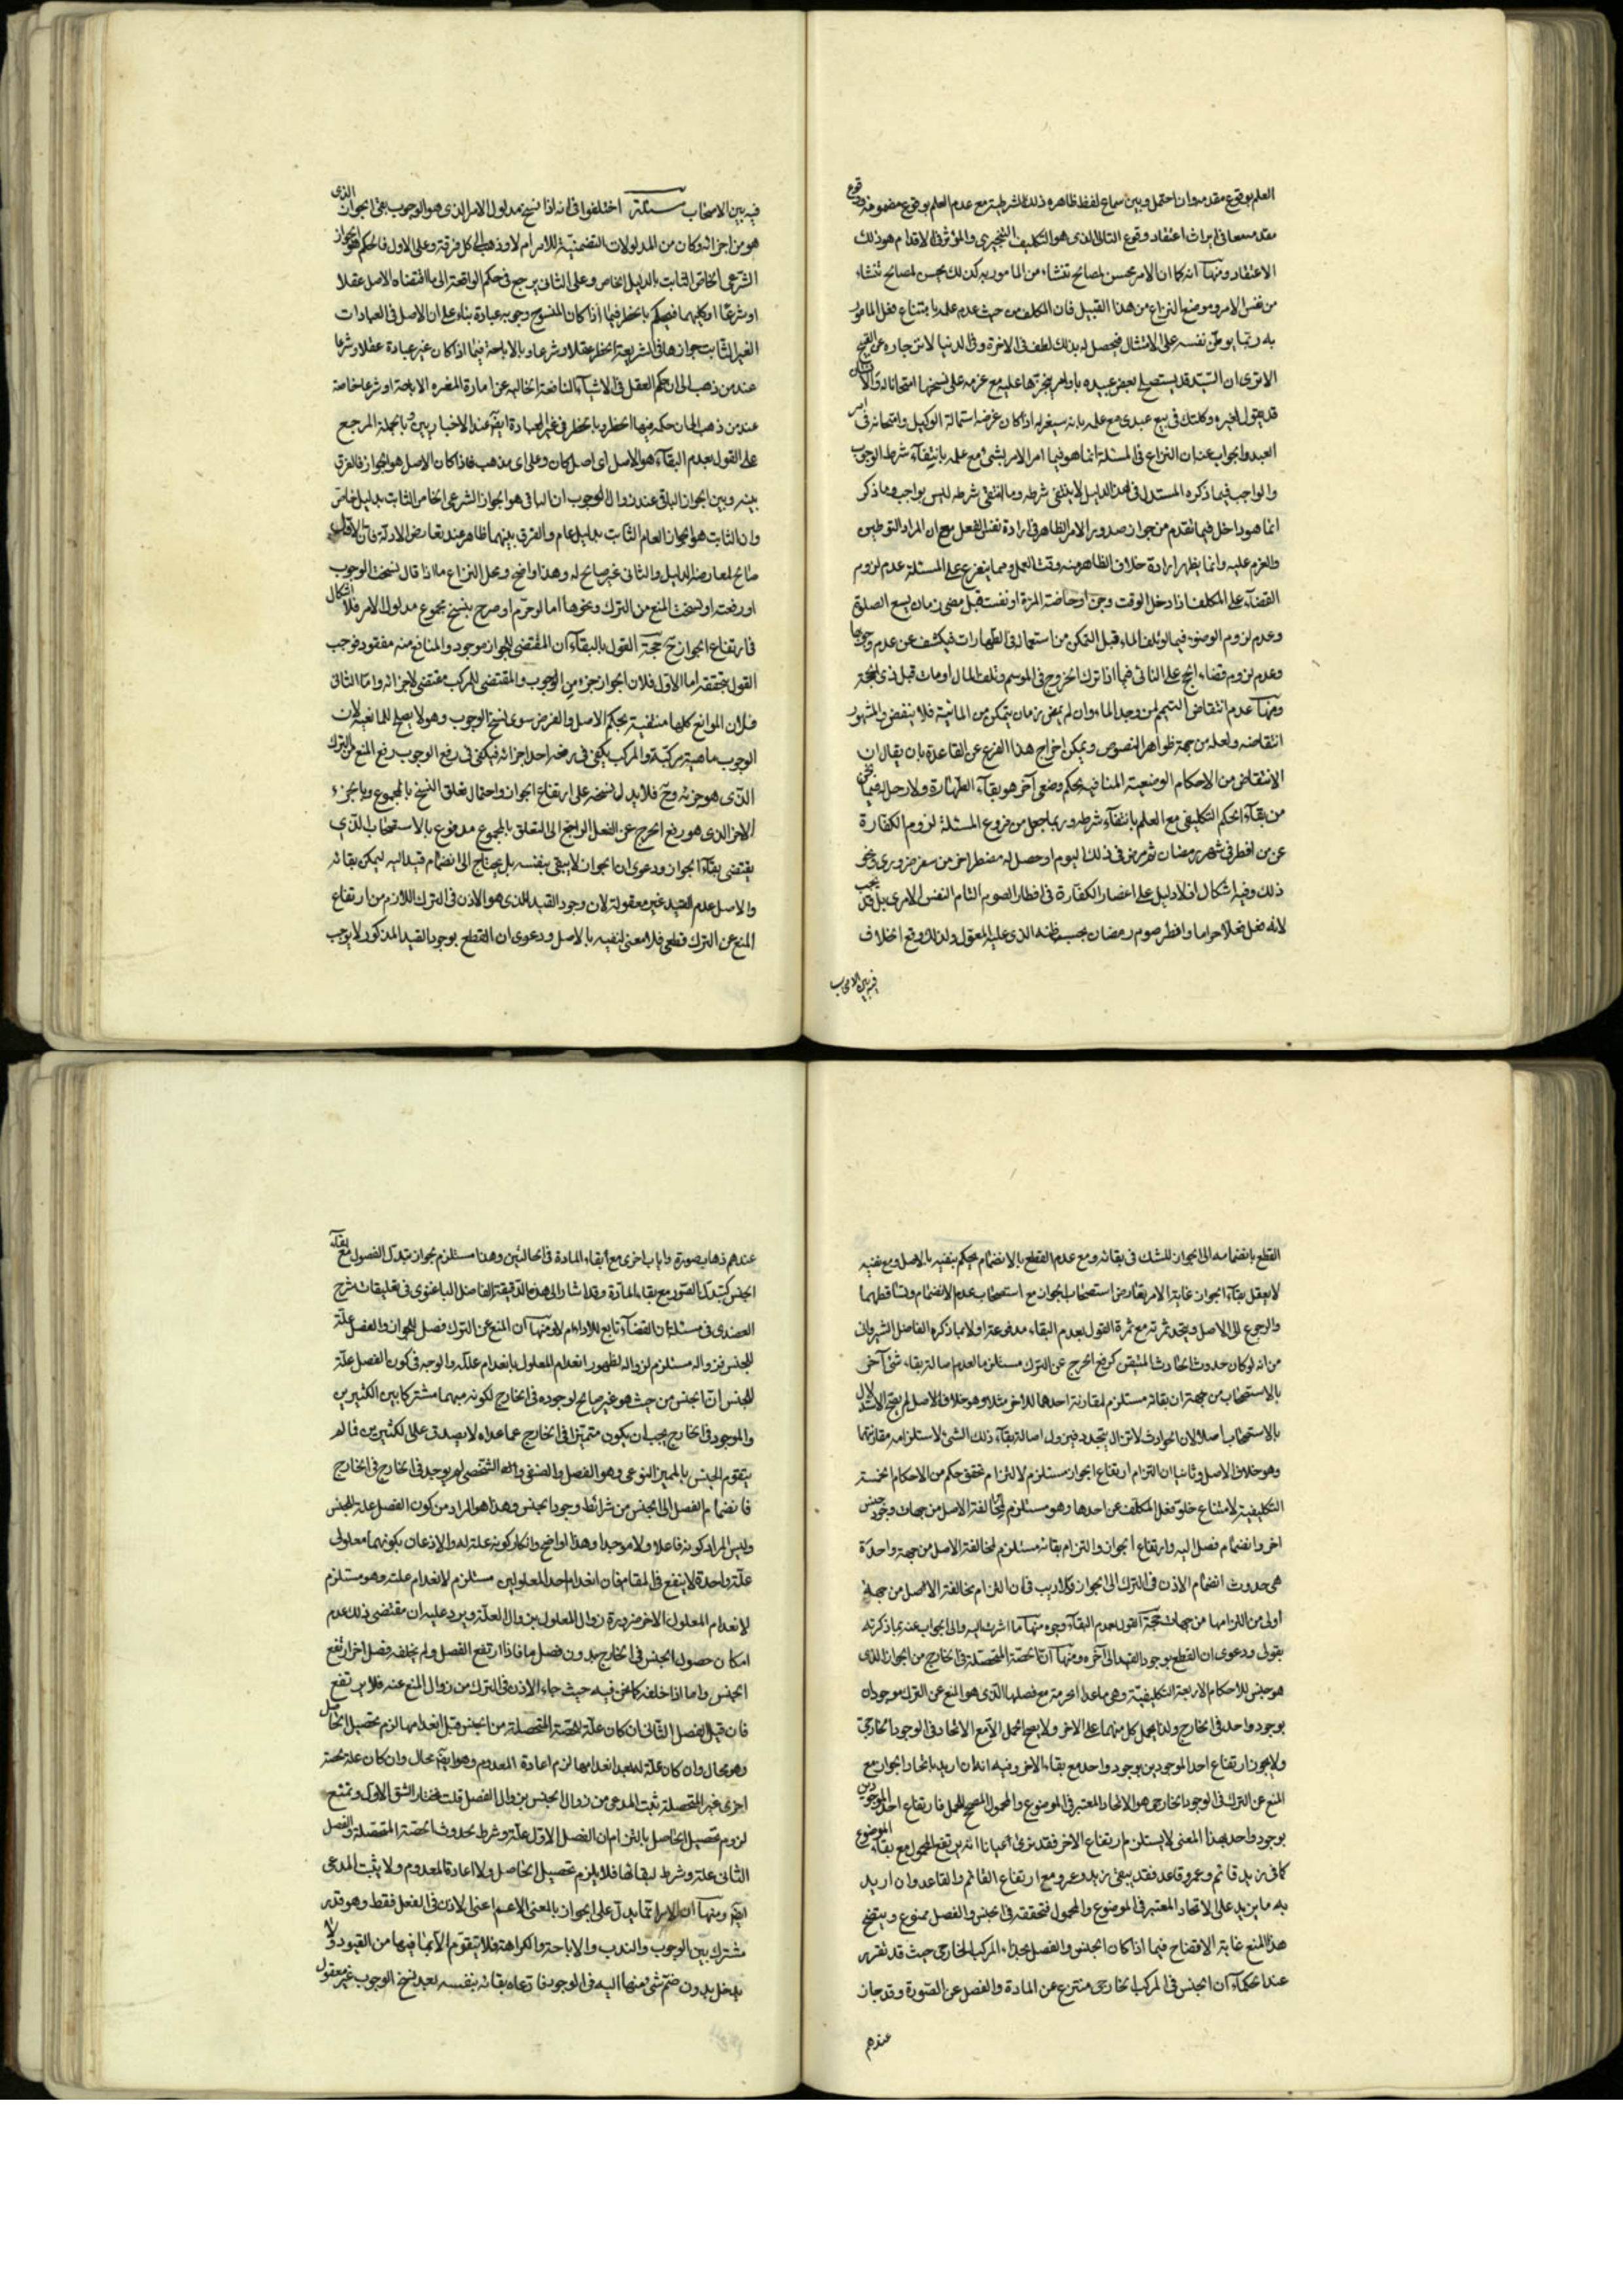 العلم بوقوع مقدمه وان احتمل وبين سماع لفظ ظاهره ذلك الشرطية مع عدم العلم بوقوع مضمونه
الاعتقاد ومنها انه كما ان الامر يحسن لمصالح تنشاء من المامور به كذلك يحسن لمصالح تنشاء
من نفس الامر وموضع النزاع من هذا القبيل فان المكلف من حيث عدم علمه بامتناع فعل المامور
به ربما يوطن نفسه على الامتثال فيحصل له بذلك لطف فى الاخرة وفى الدنيا لانزجاره عن القبيح
الا ترى ان السيد قد يستصلح بعض عبيده باوامر ينجزها عليه مع عزمه على نسخها امتحانا له والانسان
قد يقول لغيره وكلتك فى بيع عبدى مع علمه بانه سيعزله اذا كان غرضه استمالة الوكيل وامتحانه فى امر
العبد والجواب عنه ان النزاع فى المسئلة انما هو فيما امر الامر بشئ مع علمه بانتفاء شرط الوجوب
والواجب فيما ذكره المستدل فى هذا الدليل لا ينتفى شرطه وما انتفى شرطه ليس بواجب وما ذكر
انما هو داخل فيما تقدم من جواز صدور الامر الظاهر فى ارادة نفس الفعل مع ان المراد التوطين
والعزم عليه وانما يظهر ارادة خلاف الظاهر منه وقت العمل ومما يتفرع على المسئلة عدم لزوم
القضاء على المكلف اذا دخل الوقت وجن او حاضت المرة او نفست قبل مضى زمان يسع الصلوة
وعدم لزوم الوضوء فيما لو تلف الماء قبل التمكن من استعماله فى الطهارات فيكشف عن عدم وجوبها
وعدم لزوم قضاء الحج على النائى فيما اذا ترك الخروج فى الموسم وتلف المال او مات قبل ذى الحجة
ومنها عدم انتقاض التيمم لمن وجد الماء وان لم يمض زمان يتمكن من المائية فلا ينتقض والمشهور
انتقاضه ولعله من جهة ظواهر النصوص ويمكن اخراج هذا الفرع عن القاعدة بان يقال ان
الانتقاض من الاحكام الوضعية المنافية لحكم وضعى آخر هو بقاء الطهارة ولا دخل له فيما نحن
من بقاء الحكم التكليفى مع العلم بانتفاء شرطه وربما جعل من فروع المسئلة لزوم الكفارة
عن من افطر فى شهر رمضان ثم مرض فى ذلك اليوم او حصل له مفطر اخر من سفر ضرورى ونحو
ذلك وفيه اشكال اذ لا دليل على انحصار الكفارة فى افطار الصوم التام النفس الامرى بل قد يجب
لانه فعل فعلا حراما وافطر صوم رمضان بحسب ظنه الذى عليه المعول ولذلك وقع اختلاف
فيه بين الاصحاب
فيه بين الاصحاب مسئلة اختلفوا فى انه اذا نسخ مدلول الامر الذى هو الوجوب بقى الجواز الذى
هو من اجزائه وكان من المدلولات التضمنية للامر ام لا وذهب الى كل فرقة وعلى الاول فالحكم هو الجواز
الشرعى الخاص الثابت بالدليل الخاص وعلى الثانى يرجع فى حكم الواقعة الى ما اقتضاه الاصل عقلا
او شرعا او كليهما فيحكم بالحظر فيما اذا كان المنسوخ وجوبه عبادة بناء على ان الاصل فى العبادات
الغير الثابت جوازها فى الشريعة الحظر عقلا وشرعا وبالاباحة فيما اذا كان غير عبادة عقلا وشرعا
عند من ذهب الى ان حكم العقل فى الاشياء النافعة الخالية عن امارة المضره الاباحة او شرعا خاصة
عند من ذهب الى ان حكمه فيها الحظر وبالحظر فى غير العبادة ايضا عند الاخباريين وبالجملة المرجع
على القول بعدم البقاء هو الاصل اى اصل كان وعلى اى مذهب فاذا كان الاصل هو الجواز فالفرق
بينه وبين الجواز الباقى عند زوال الوجوب ان الباقى هو الجواز الشرعى الخاص الثابت بدليل خاص
وان الثابت هو الجواز العام الثابت بدليل عام والفرق بينهما ظاهر عند تعارض الادلة فان الاول
صالح لمعارضة الدليل والثانى غير صالح له وهذا واضح ومحل النزاع ما اذا قال نسخت الوجوب
او رفعته او نسخت المنع من الترك ونحوها اما لو حرم او صرح بنسخ مجموع مدلول الامر فلا اشكال
فى ارتفاع الجواز ح حجة القول بالبقاء ان المقتضى للجواز موجود والمانع منه مفقود فوجب
القول بتحققه اما الاول فلان الجواز جزء من الوجوب والمقتضى للمركب مقتضى لاجزائه واما الثانى
فلان الموانع كلها منتفية بحكم الاصل والفرض سوى نسخ الوجوب وهو لا يصلح للمانعية لان
الوجوب ماهية مركبة والمركب يكفى فى رفعه رفع احد اجزائه فيكفى فى رفع الوجوب رفع المنع من الترك
الذى هو جزئه وح فلا يدل نسخه على ارتفاع الجواز واحتمال تعلق النسخ بالمجموع وبالجزء
الاخر الذى هو رفع الحرج عن الفعل الراجح الى التعلق بالمجموع مدفوع بالاستصحاب الذى
يقتضى بقاء الجواز ودعوى ان الجواز لا يبقى بنفسه بل يحتاج الى انضمام قيد اليه ليمكن بقائه
والاصل عدم القيد غير معقولة لان وجود القيد الذى هو الاذن فى الترك اللازم من ارتفاع
المنع عن الترك قطعى فلا معنى لنفيه بالاصل ودعوى ان القطع بوجود القيد المذكور لا يوجب
القطع بانضمامه الى الجواز للشك فى بقائه ومع عدم القطع بالانضمام يحكم بنفيه بالاصل ومع نفيه
لا يعقل بقاء الجواز غاية الامر تعارض استصحاب الجواز مع استصحاب عدم الانضمام وتساقطهما
والرجوع الى الاصل ويتحد ثمرته مع ثمرة القول بعدم البقاء مدفوعة اولا بما ذكره الفاضل الشيروانى
من انه لو كان حدوث الحادث المتيقن كرفع الحرج عن الترك مستلزما لعدم اصالة بقاء شئ آخر
بالاستصحاب من جهة ان بقائه مستلزم لمقارنة احدها للاخر مثلا وهو خلاف الاصل لم يصح الاستدلال
بالاستصحاب اصلا لان الحوادث لا تزال يتجدد فيزول اصالة بقاء ذلك الشئ لاستلزامه مقارنتها
وهو خلاف الاصل وثانيا ان التزام ارتفاع الجواز مستلزم لالتزام تحقق حكم من الاحكام الخمسة
التكليفية لامتناع خلو فعل المكلف عن احدها وهو مستلزم لمخالفة الاصل من جهات وجود جنس
اخر وانضمام فصل اليه وارتفاع الجواز والتزام بقائه مستلزم لمخالفة الاصل من جهة واحدة
هى حدوث انضمام الاذن فى الترك الى الجواز ولا ريب فى ان التزام مخالفة الاصل من جهة
اولى من التزامها من جهات حجة القول بعدم البقاء وجوه منها ما اشرت اليه والى الجواب عنه بما ذكرته
بقولى ودعوى ان القطع بوجود القيد الى آخره ومنها ان الحصة المتحصلة فى الخارج من الجواز الذى
هو جنس للاحكام الاربعة التكليفية وهى ماعدا الحرمة مع فصلها الذى هو المنع عن الترك موجودان
بوجود واحد فى الخارج ولذا يحمل كل منهما على الاخر ولا يصح الحمل الا مع الاتحاد فى الوجود الخارجى
ولا يجوز ارتفاع احد الموجودين بوجود واحد مع بقاء الاخر وفيه انه ان اريد باتحاد الجواز مع
المنع عن الترك فى الوجود الخارجى هو الاتحاد المعتبر فى الموضوع والمحمول المصحح للحمل فارتفاع احد الموجودين
بوجود واحد بهذا المعنى لا يستلزم ارتفاع الاخر فقد نرى احيانا انه يرتفع المحمول مع بقاء الموضوع
كما فى زيد قائم وعمرو قاعد فقد يبقى زيد وعمرو مع ارتفاع القائم والقاعد وان اريد
به ما يزيد على الاتحاد المعتبر فى الموضوع والمحمول فتحققه فى الجنس والفصل ممنوع ويتضح
هذا المنع غاية الاتضاح فيما اذا كان الجنس والفصل جزء المركب الخارجى حيث قد تقرر
عند الحكماء ان الجنس فى المركب الخارجى منتزع عن المادة والفصل عن الصورة وقد جاز
عندهم
عندهم ذهاب صورة واياب اخرى مع بقاء المادة فى الحالتين وهذا مستلزم بجواز تبدل الفصول مع بقاء
الجنس كتبدل الصور مع بقاء المادة وقد اشار الى هذه الدقيقة الفاضل الباغنوى فى تعليقات شرح
العضدى فى مسئلة ان القضاء تابع للاداء ام لا ومنها ان المنع عن الترك فصل للجواز والفصل علة
للجنس فزواله مستلزم لزواله لظهور انعدام المعلول بانعدام علته والوجه فى كون الفصل علة
للجنس ان الجنس من حيث هو غير صالح لوجوده فى الخارج لكونه مبهما مشتركا بين الكثيرين
والموجود فى الخارج يجب ان يكون متميزا فى الخارج عما عداه لا يصدق على الكثيرين فما لم
يتقوم الجنس بالمميز النوعى وهو الفصل والصنفى والشخصى لم يوجد فى الخارج فى الخارج
فانضمام الفصل الى الجنس من شرائط وجود الجنس وهذا هو المراد من كون الفصل علة للجنس
وليس المراد كونه فاعلا ولا موجدا وهذا واضح وانكار كونه علة له والاذعان بكونهما معلولى
علة واحدة لا ينفع فى المقام فان انعدام احد المعلولين مستلزم لانعدام علته وهو مستلزم
لانعدام المعلول الاخر ضرورة زوال المعلول بزوال العلة ويرد عليه ان مقتضى ذلك عدم
امكان حصول الجنس فى الخارج بدون فصل ما فاذا ارتفع الفصل ولم يخلفه فصل اخر ارتفع
الجنس واما اذا خلفه كما نحن فيه حيث جاء الاذن فى الترك من زوال المنع عنه فلا يرتفع
فان قيل الفصل الثانى ان كان علة للحصة المتحصلة من الجنس قبل انعدامها لزم تحصيل الحاصل
وهو محال وان كان علة له بعد انعدامها لزم اعادة المعدوم وهو ايضا محال وان كان علة لحصة
اخرى غير المتحصلة ثبت المدعى من زوال الجنس بزوال الفصل قلت نختار الشق الاول ونمنع
لزوم تحصيل الحاصل بالتزام ان الفصل الاول علة وشرط لحدوث الحصة المتحصلة والفصل
الثانى علة وشرط لبقائها فلا يلزم تحصيل الحاصل ولا اعادة المعدوم ولا يثبت المدعى
ايضا ومنها ان الامر انما يدل على الجواز بالمعنى الاعم اعنى الاذن فى الفعل فقط وهو قدر
مشترك بين الوجوب والندب والاباحة والكراهة فلا يتقوم الا بما فيها من القيود ولا
يدخل بدون ضم شئ منها اليه فى الوجود فادعاء بقائه بنفسه بعد نسخ الوجوب غير معقول